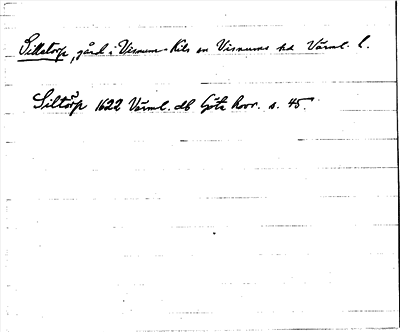 Silletorp, gård i Visnums-Kils sn Visnums hd Värml. l.
Siltorp 1622 Värml. db Göta hovr. s. 45.